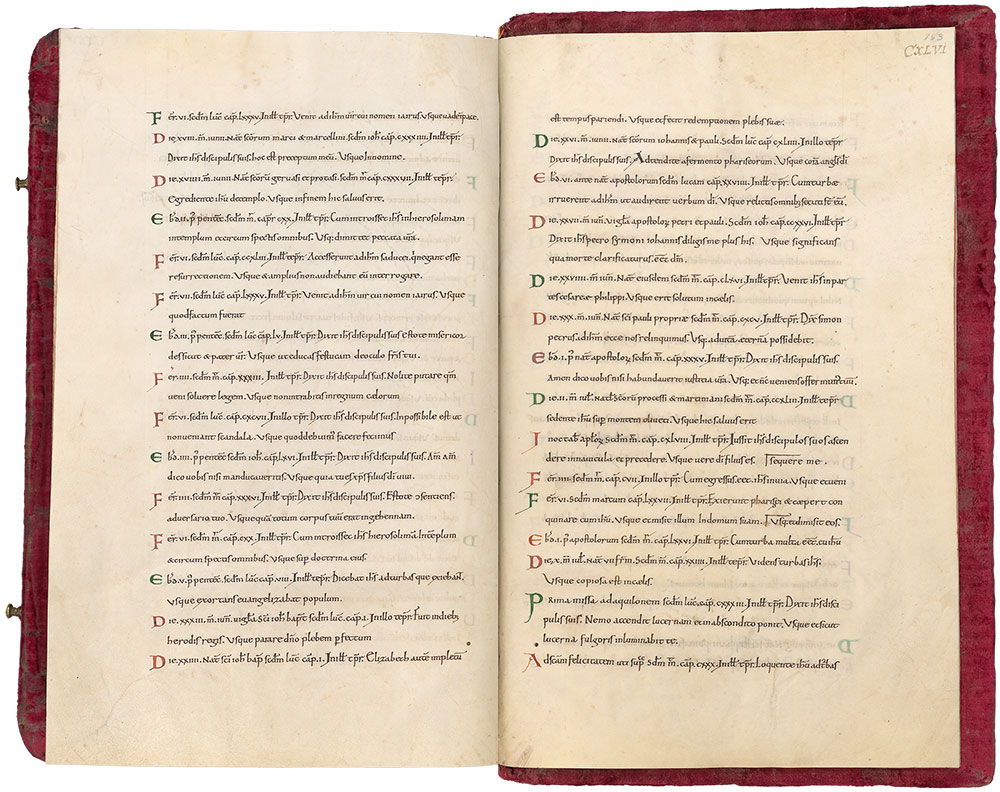 Fer.vi.sedm luc̄ cap̄.lxxxv.Inill t̄pr. Venit adihm̄ uir cui nomen iairus usque uade in pace.
Die.xviii.m̄.iunii. Nat̄ scōrum marci & marcelliani. scdm̄ ioh̄ cap̄.cxxxiiii. Inill t̄pr.
Dixit ih̄s discipulis suis. hoc est preceptum meū. Usque Innomine.
Die.xviiii.m̄.iunii. Nat̄ scōrū geruasi & protasi. scdm̄ m̄. cap̄. Inill t̄pr.
Egrediente ih̄u detemplo. Usque infinem hic saluus erit.
Ebd̄.ii.p̄ pentec̄. scdm̄ m̄. cap̄r cxx. Inill t̄pr. Cum introisset ih̄s in hierosolimam
intemplum & circum spectis omnibus. Usq: dimittet peccata ur̄a.
Fer̄.vi.scdm̄ luc̄. cap̄.ccxliii. Inill t̄pr. Accesserunt adih̄m saducei. qui negant esse
resurrectionem. Usque & amplius non audiebant eū interrogare.
Fer̄.vii.scdm̄ luc̄. cap̄.lxxxv. Inill t̄pr. Venit. adih̄m uir cui nomen iairus. Usque
quod factum fuerat
Ebd̄.iii.p̄ pentec̄. scdm̄ luc̄. cap̄.lv. Inill t̄pr. Dixit ih̄s discipulis suis estote misericor
des sicut & pater ur̄. Usque ut educas festucam de oculo fr̄is tui.
Fer̄.iiii.scdm̄ m̄. cap̄.xxxiii. Inill t̄pr. Dixit ih̄s discipulis suis. Nolite putare qm̄
ueni soluere legem. Usque non intrabitis in regnum cælorum
Fer̄.vi.scdm̄ luc̄. cap̄.cxcvii. Inillo t̄pr. Dixit ih̄s discipulis suis. Inpossibile est ut
non ueniant scandala. Usque quod debuim̄ facere fecimus
Ebd̄.iiii.p̄ pentec̄. scdm̄ ioh̄. cap̄.lxvi. Inill t̄pr. Dixit ih̄s discipulis suis. Am̄ am̄
dico uobis nisi manducaueritis. Usque quia tu es xp̄s filius dī uiui.
Fer̄.iiii.scdm̄ m̄. cap̄.xxxvi. Inill t̄pr. Dixit ih̄s discipulis suis. Estote consentiens
aduersario tuo. Usque quā totum corpus tuū erat in gehennam.
Fer̄.vi.scdm̄ m̄. cap̄.cxx. Inill t̄pr. Cum introisset ih̄s hierosolima In templum
& circum spectis omnibus. Usque sup̄ doctrina eius.
Ebd̄.v.p̄ pentec̄. scdm̄ luc̄. cap̄.viii. Inill t̄epr. Dicebat ih̄s ad turbas que exiebant.
Usque exortans euangelizabat populum.
Die.xxiii.m̄.iun̄. uigilia Scī ioh̄ bap̄t scdm̄ luc̄. cap̄.i. Inillo t̄epr. Fuit in dieb;
herodis regis. Usque parare dn̄o plebem perfectum
Die.xxiiii. Nat̄ scī ioh̄ bap̄ scdm̄ luc̄. cap̄.i. Inill t̄pr. Elizabeth autē impletū
163
CXLVI
est tempus pariendi. Usque et fecit redemptionem plebis suæ.
Die.xxvi.m̄.iunii. Nat̄ scōrum iohannis & pauli. Scdm̄ luc̄ cap̄ cxliiii. Inillo t̄pr
Dixit ih̄s discipulis suis. Adtendite a fermento phariseorum. Usque corā angl̄s dī
Ebd̄.vi. ante nat̄ apostolorum scdm̄ lucam cap̄.xxviiii. Inill t̄pr. Cum turbæ
irruerent adih̄m ut audirent uerbum dī. Usque relictis omnib; secuti sē eū.
Die.xxvii.m̄ iun̄. uigl̄a apostolor̄ petri et pauli. Scdm̄ ioh̄ cap̄.ccxxvi. Inill t̄pr
Dixit ih̄s petro simoni iohannis diligis me plus his. Usque significans
qua morte clarificaturus. ec̄c dm̄.
Die.xxviiii.m̄ iun̄. Nat̄ eiusdem scdm̄ m̄. cap̄.clxvi. Inill t̄pr. Venit ih̄s in par
tes cesareæ philippi. Usque erit solutum in cælis.
Die.xxx.m̄.iun̄. Nat̄ scī pauli propriæ scdm̄ m̄. cap̄.cxcv. Inill t̄pr. Dix̄ simon
petrus. adih̄m ecce nos relinquimus. Usq. aduitā eternā possidebit.
Ebd̄.i.p̄ nat̄ apostolor̄ scdm̄ m̄. cap̄.xxxv. Inill t̄pr. Dixit ih̄s discipulis suis.
Amen dico uobis nisi habundauerit iustitia ur̄a. Usq. et tūc ueniens offer mun̄ tuū.
Die.ii.m̄ iul̄. Nat̄ scōrū processi & martiniani scdm̄ m̄. cap̄.ccxliii. Inill t̄pr
sedente ih̄u sup̄ montem oliueti. Usque hic saluus erit
In octab̄ aplōr̄. Scdm̄ m̄. cap̄.cxlvii. Inill t̄pr. Iussit ih̄s discipulos suos ascen
dere in nauicula et precedere. Usque uere dī filius es. sequere me.
Fer̄.iiii.scdm̄ m̄. cap̄.cvii. Inillo t̄pr. Cum egressus. ec̄c. ih̄s in uia. Usque
Fer̄.vi. Scdm̄ marcum cap̄.lxxvii. Inill t̄pr. Exierunt pharisei & cæpert con
quirare cum ih̄u. Usque et misit illum In domum suam. Usq. et dimisit eos.
Ebd̄.i.p̄ apostolorum scdm̄ m̄. cap̄.lxxvi. Inill t̄pr. Cum turba multa eēt. cū ih̄u
Die.x.m̄ iul̄. Nat̄ vii fr̄m. Scdm̄ m̄. cap̄.xxiiii. Inill t̄epr. Videns turbas ih̄s
Usque copiosa est in cælis.
Prima missa ad aquilonem scdm̄ luc̄. cap̄.cxxxiii. Inill t̄pr. Dixit ih̄s disci
pulis suis. Nemo accendit lucernam et in abscondito ponit. Usque et sicut
lucerna fulgoris inluminabit te.
Ad scām felicitatem uti sup̄. Scdm̄ m̄. cap̄.cxxx. Inill t̄pr. Loquente ih̄u ad t̄bas